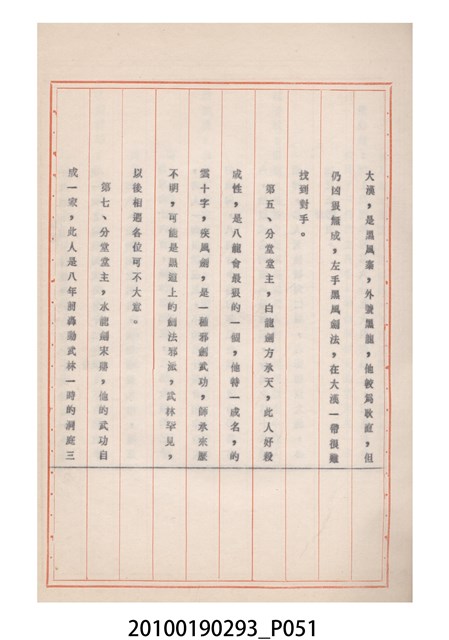 大漢，是黑風寨，外號黑龍，他較爲耿直，但
仍凶狠頑成，左手黑風劍法，在大漠一帶很難
找到對手。
第五、分堂堂主，白龍劍方承天，此人好殺
成性，是八龍會最狠的一個，他特一成名，的
雲十字，疾風劍，是一種邪劍武功，師承來歷
不明，可能是黑道上的劍法邪派，武林罕見，
以後相遇各位可不大意。
第七、分堂堂主，水龍劍宋，他的武功自
成一家，此人是八年前轟動武林一時的洞庭三
20100190293_P051